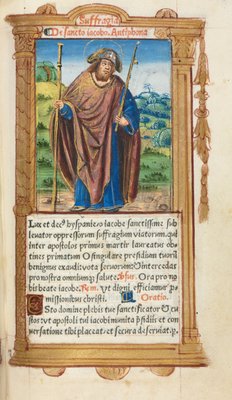 Suffragia
De sancto iacobo. Antiphona
Lux et dec⁹ hyspanie, o iacobe sanctissime sub
leuator oppressorum suffragium viatorum, qui
inter apostolos primus martir laureatus ob
tines primatum O singulare presidium tuorũ
benignus exaudi vota seruorum: intercedas
pro nostra omnium salute. Versus. Ora pro no
bis beate iacobe. Rem. vt digni efficiamur p
missionibus christi. Oratio.
Esto domine plebis tue sanctificator & cu
stos: vt apostoli tui iacobi munita p̃sidiis: et con
uersatione tibi placeat: et secura deseruiat. p.